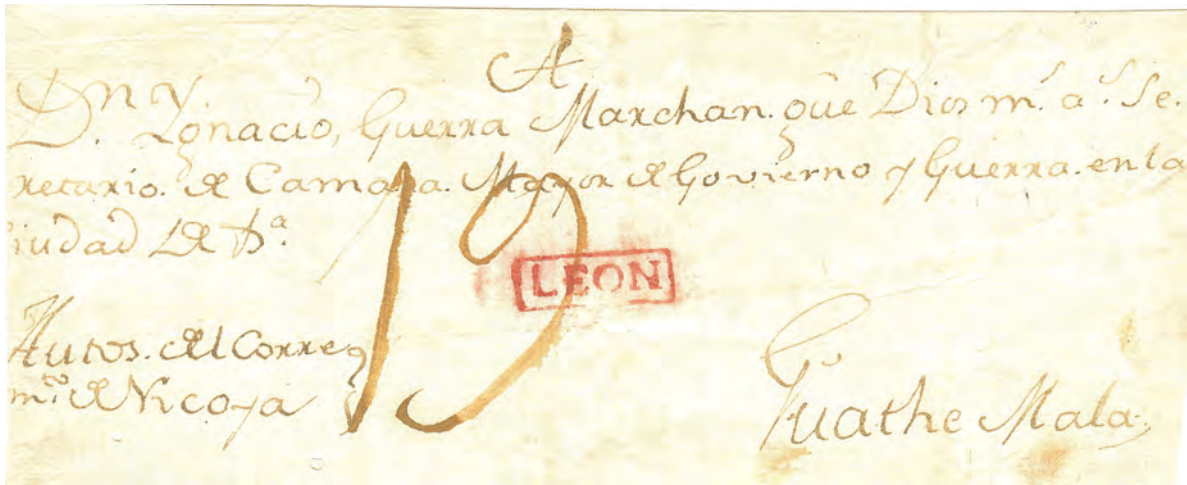 A
Dn Y.
D. Ygnacio, Guerra Marchan. que Dios m.s a.s Se.
cretario. de Camara. Mayor de Govierno y Guerra. en la
Ciudad de
19
LEON
Autos. del Correg
m.to de Nicoya
Guathe Mala